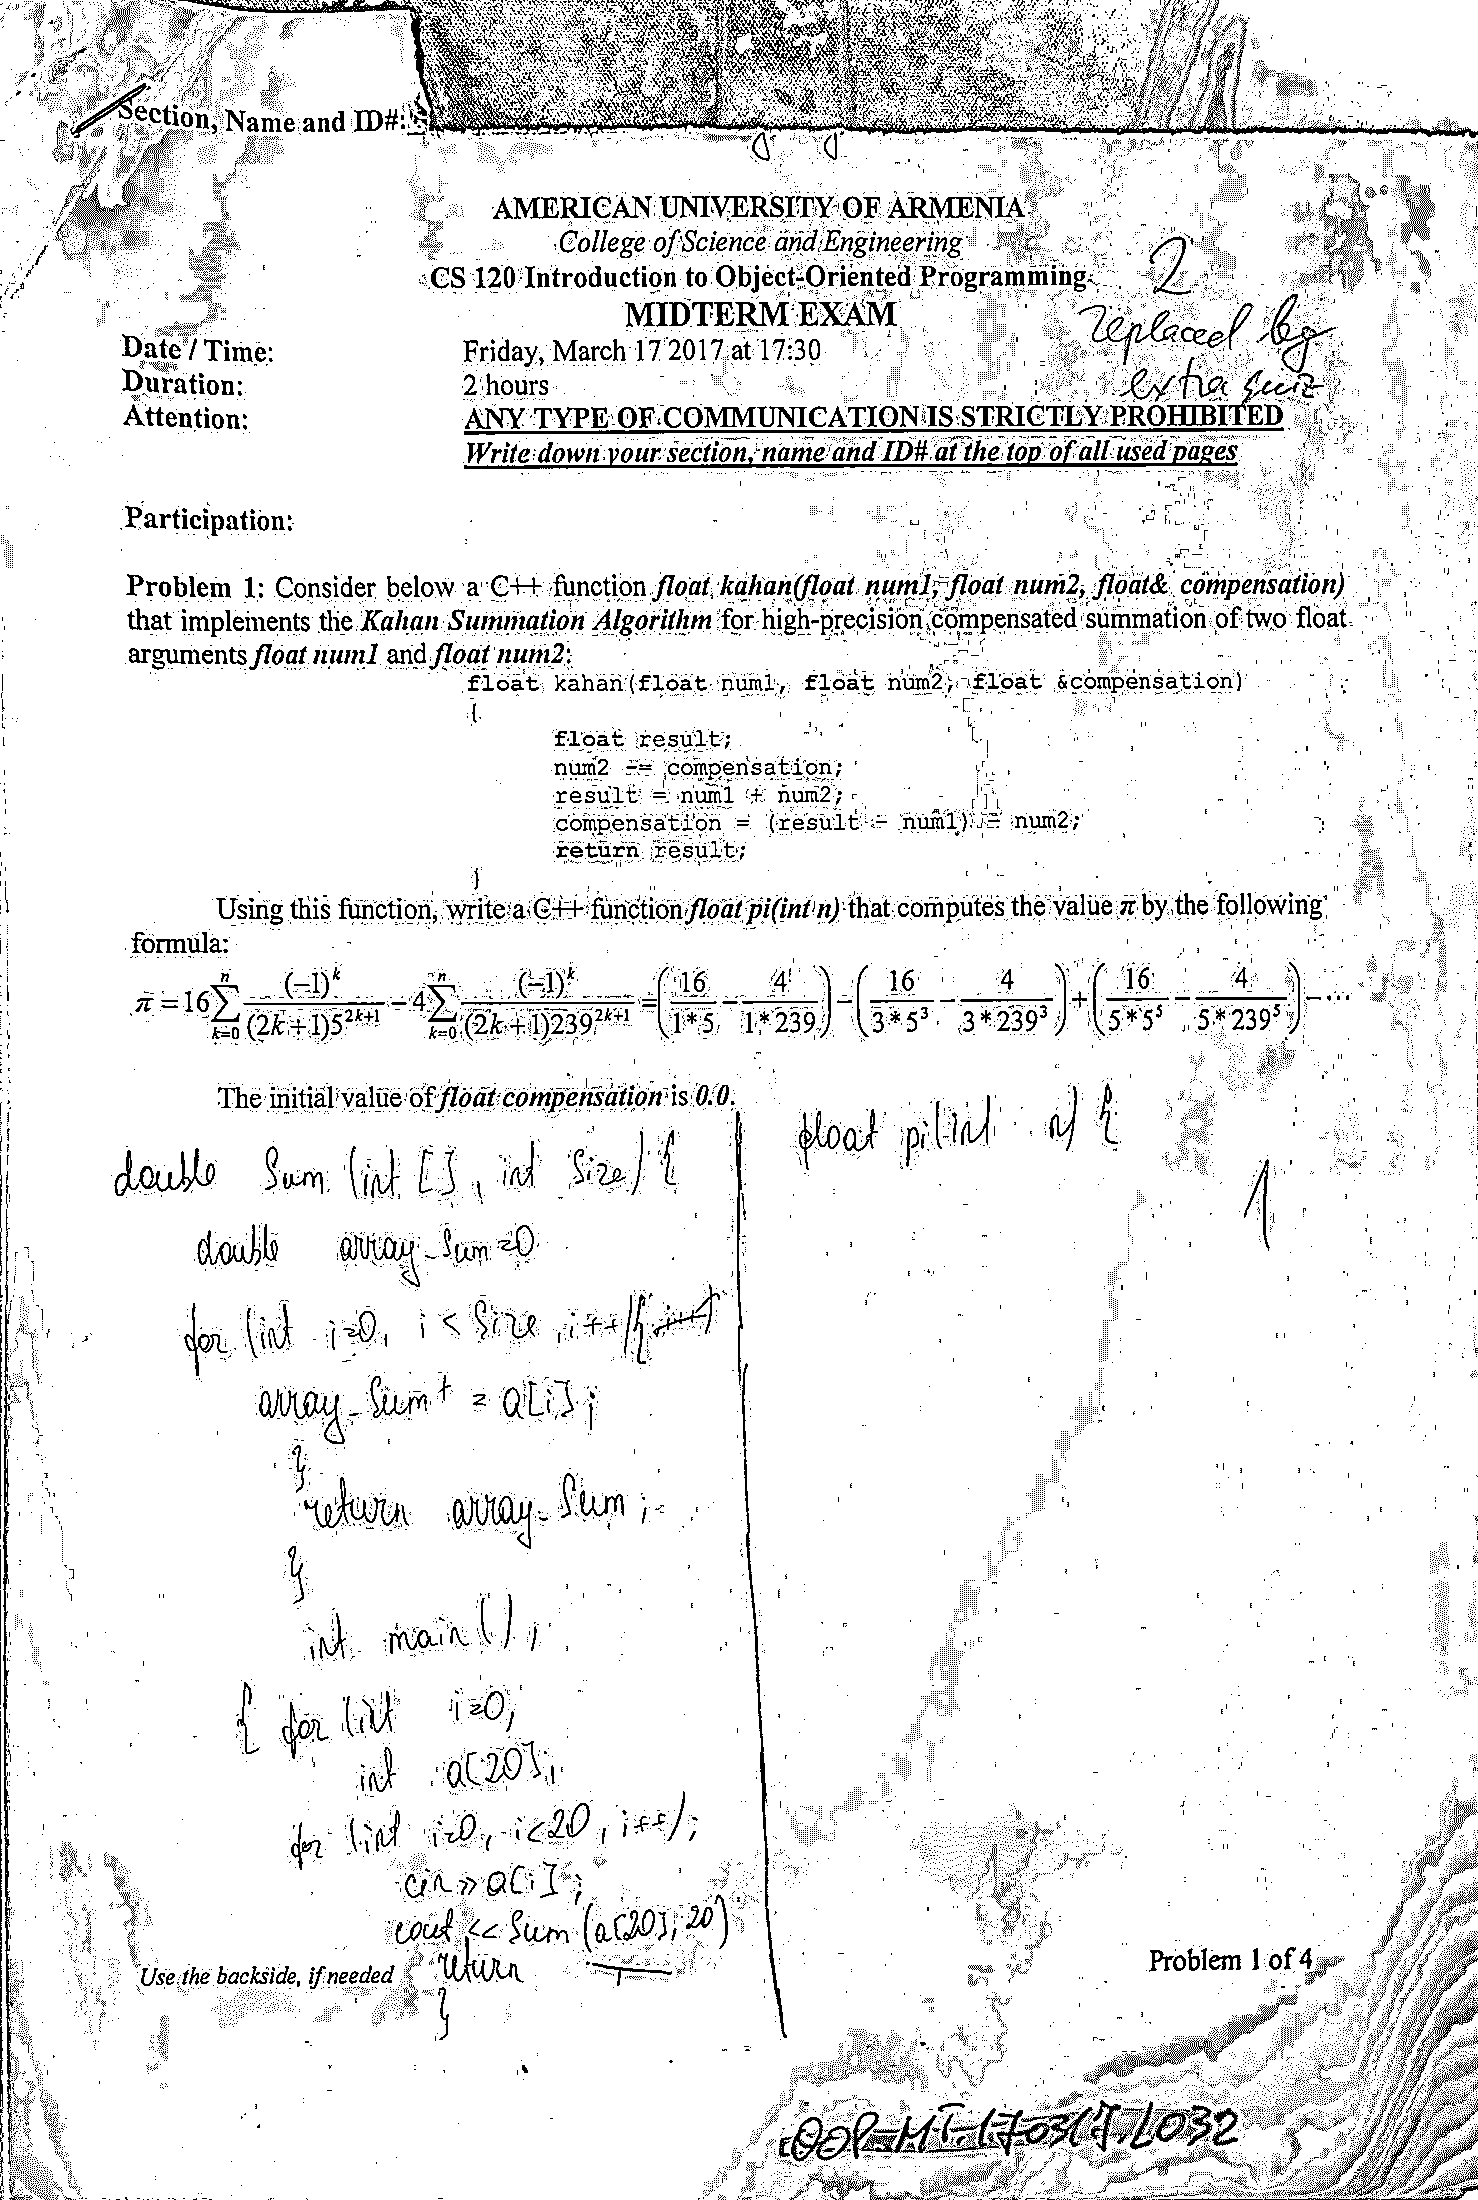 Section, Name and ID#:
AMERICAN UNIVERSITY OF ARMENIA
College of Science and Engineering
CS 120 Introduction to Object-Oriented Programming
MIDTERM EXAM
2
replaced by
extra quiz
Date / Time: Friday, March 17 2017 at 17:30
Duration: 2 hours
Attention: ANY TYPE OF COMMUNICATION IS STRICTLY PROHIBITED
Write down your section, name and ID# at the top of all used pages
Participation:
Problem 1: Consider below a C++ function float kahan(float num1, float num2, float& compensation)
that implements the Kahan Summation Algorithm for high-precision compensated summation of two float
arguments float num1 and float num2:
float kahan(float num1, float num2, float &compensation)
{
float result;
num2 -= compensation;
result = num1 + num2;
compensation = (result - num1) - num2;
return result;
}
Using this function, write a C++ function float pi(int n) that computes the value π by the following
formula:
π = 16 \sum_{k=0}^{n} \frac{(-1)^k}{(2k+1)5^{2k+1}} - 4 \sum_{k=0}^{n} \frac{(-1)^k}{(2k+1)239^{2k+1}} = (\frac{16}{1*5} - \frac{4}{1*239}) - (\frac{16}{3*5^3} - \frac{4}{3*239^3}) + (\frac{16}{5*5^5} - \frac{4}{5*239^5}) - ⋯
The initial value of float compensation is 0.0.
double Sum (int [], int Size) {
double array_Sum=0
for (int i=0, i < Size, i++) {
array_Sum += a[i];
}
return array_Sum;
}
int main(),
{ for (int i=0;
int a[20];
for (int i=0, i<20, i++);
cin >> a[i];
cout << Sum (a[20], 20)
return
}
float pi(int n) {
1
Use the backside, if needed
Problem 1 of 4
OOP-MT-170317-L032